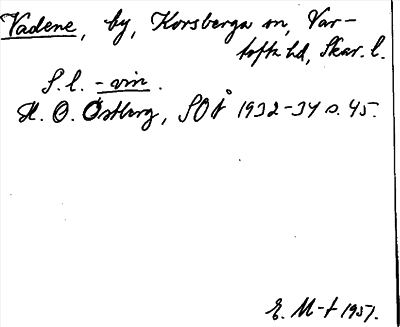 Vadene, by, Korsberga sn, Var-
tofta hd, Skar. l.
S. l. -vin.
H. O. Östberg, SOÅ 1932-34 s. 45.
E. M-t 1957.